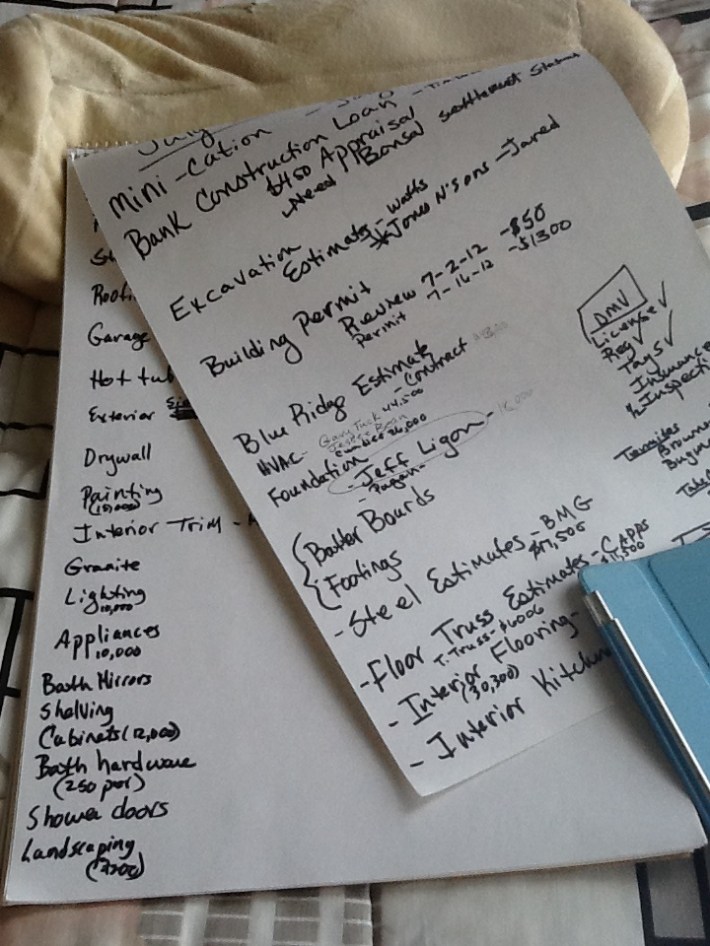 July
Mini-Cation
Bank Construction Loan
$450 Appraisal
Need Bonsal settlement
Excavation
Estimate - Watts
Jones N' Sons - Jared
Building Permit
Review 7-2-12 - $50
Permit 7-16-12 - $1300
Blue Ridge Estimate
- Contract
HVAC-
44,500
36,000
Foundation
- Jeff Ligon -
- Pagan -
Batter Boards
Footings
- Steel Estimates - BMG
$17,500
- Floor Truss Estimates - Capps
T. Truss - $6006
$11,500
- Interior Flooring -
(30,300)
- Interior Kitchen
DMV
License ✓
Reg ✓
Tags ✓
Insurance
Inspecti
Termites
Roofi
Garage
Hot tub
Exterior
Drywall
Painting
(10,000)
Interior Trim -
Granite
Lighting
10,000
Appliances
10,000
Bath Mirrors
Shelving
Cabinets (12,000)
Bath hardware
(250 per)
Shower doors
Landscaping